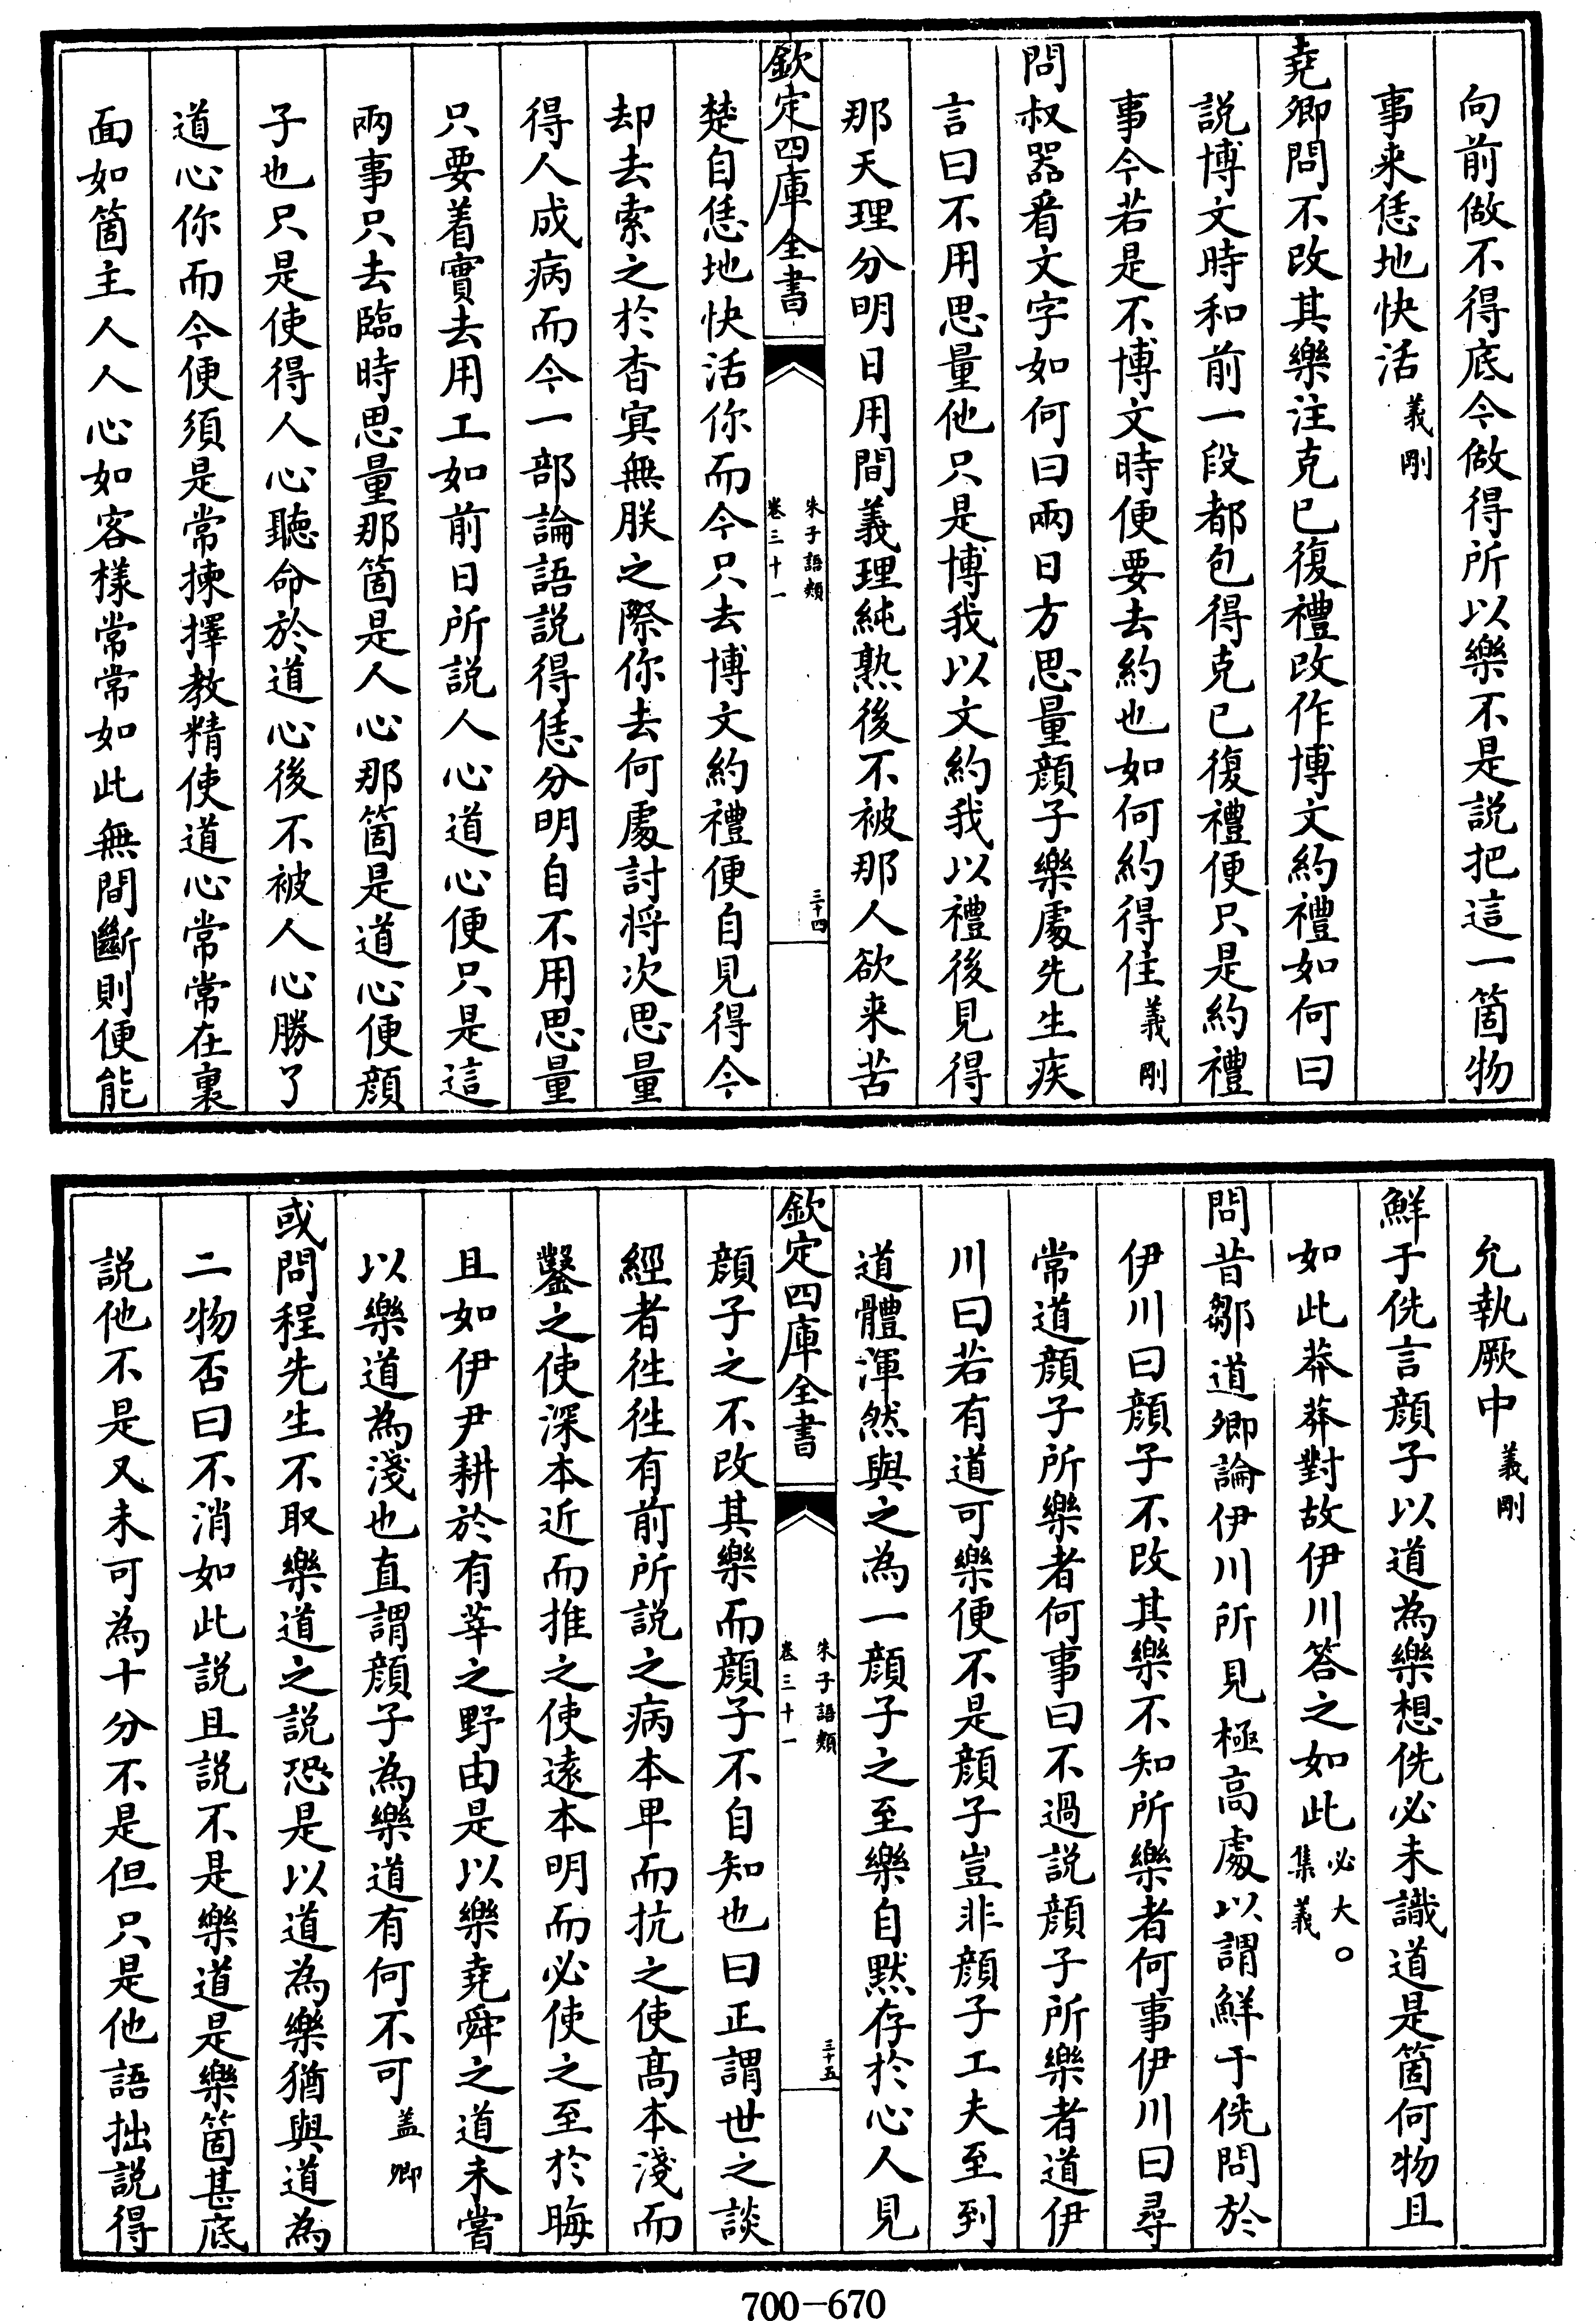 向前做不得底今做得所以樂不是説把這一箇物
事来恁地快活義剛
堯卿問不改其樂注克已復禮改作博文約禮如何曰
説博文時和前一段都包得克已復禮便只是約禮
事今若是不博文時便要去約也如何約得住義剛
問叔器看文字如何曰兩日方思量顔子樂處先生疾
言曰不用思量他只是博我以文約我以禮後見得
那天理分明日用間義理純熟後不被那人欲来苦
欽定四庫全書
朱子語類
卷三十一
三十四
楚自恁地快活你而今只去博文約禮便自見得今
却去索之於杳冥無朕之際你去何處討將次思量
得人成病而今一部論語説得恁分明自不用思量
只要着實去用工如前日所説人心道心便只是這
兩事只去臨時思量那箇是人心那箇是道心便顔
子也只是使得人心聽命於道心後不被人心勝了
道心你而今便須是常揀擇教精使道心常常在裏
面如箇主人人心如客樣常常如此無間斷則便能
允執厥中義剛
鮮于侁言顔子以道為樂想侁必未識道是箇何物且
如此莽莽對故伊川答之如此必大○集義
問昔鄒道卿論伊川所見極高處以謂鮮于侁問於
伊川曰顔子不改其樂不知所樂者何事伊川曰尋
常道顔子所樂者何事曰不過説顔子所樂者道伊
川曰若有道可樂便不是顔子豈非顔子工夫至到
道體渾然與之為一顔子之至樂自默存於心人見
欽定四庫全書
朱子語類
卷三十一
三十五
顔子之不改其樂而顔子不自知也曰正謂世之談
經者徃徃有前所説之病本卑而抗之使髙本淺而
鑿之使深本近而推之使遠本明而必使之至於晦
且如伊尹耕於有莘之野由是以樂堯舜之道未嘗
以樂道為淺也直謂顔子為樂道有何不可盖卿
或問程先生不取樂道之説恐是以道為樂猶與道為
二物否曰不消如此説且説不是樂道是樂箇甚底
説他不是又未可為十分不是但只是他語拙説得
700-670